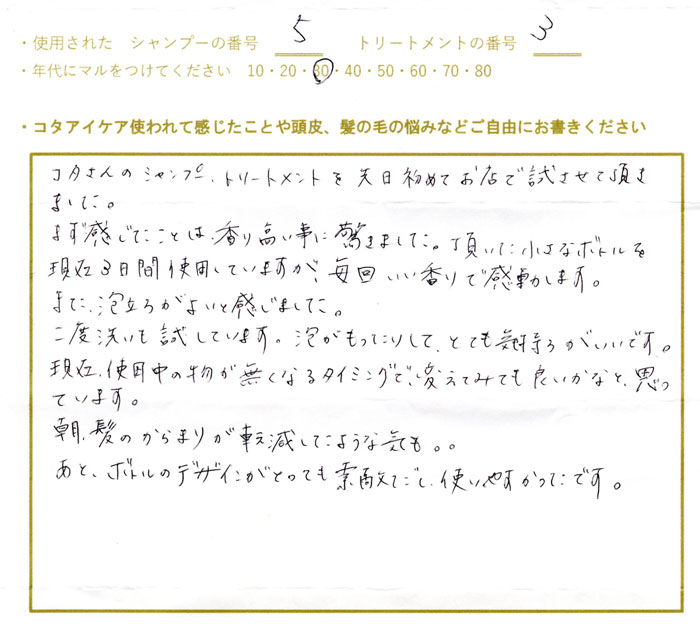 ・使用された シャンプーの番号 5 トリートメントの番号 3
・年代にマルをつけてください 10・20・30・40・50・60・70・80
・コタアイケア使われて感じたことや頭皮、髪の毛の悩みなどご自由にお書きください
コタさんのシャンプー、トリートメントを先日初めてお店で試させて頂き
ました。
まず感じたことは、香り高い事に驚きました。頂いた小さなボトルを
現在3日間使用していますが、毎回いい香りで感動します。
また、泡立ちがよいと感じました。
二度洗いも試しています。泡がもったりして、とても気持ちがいいです。
現在、使用中の物が無くなるタイミングで、変えてみても良いかなと、思っ
ています。
朝、髪のからまりが軽減したような気も。。
あと、ボトルのデザインがとっても素敵で、使いやすかったです。